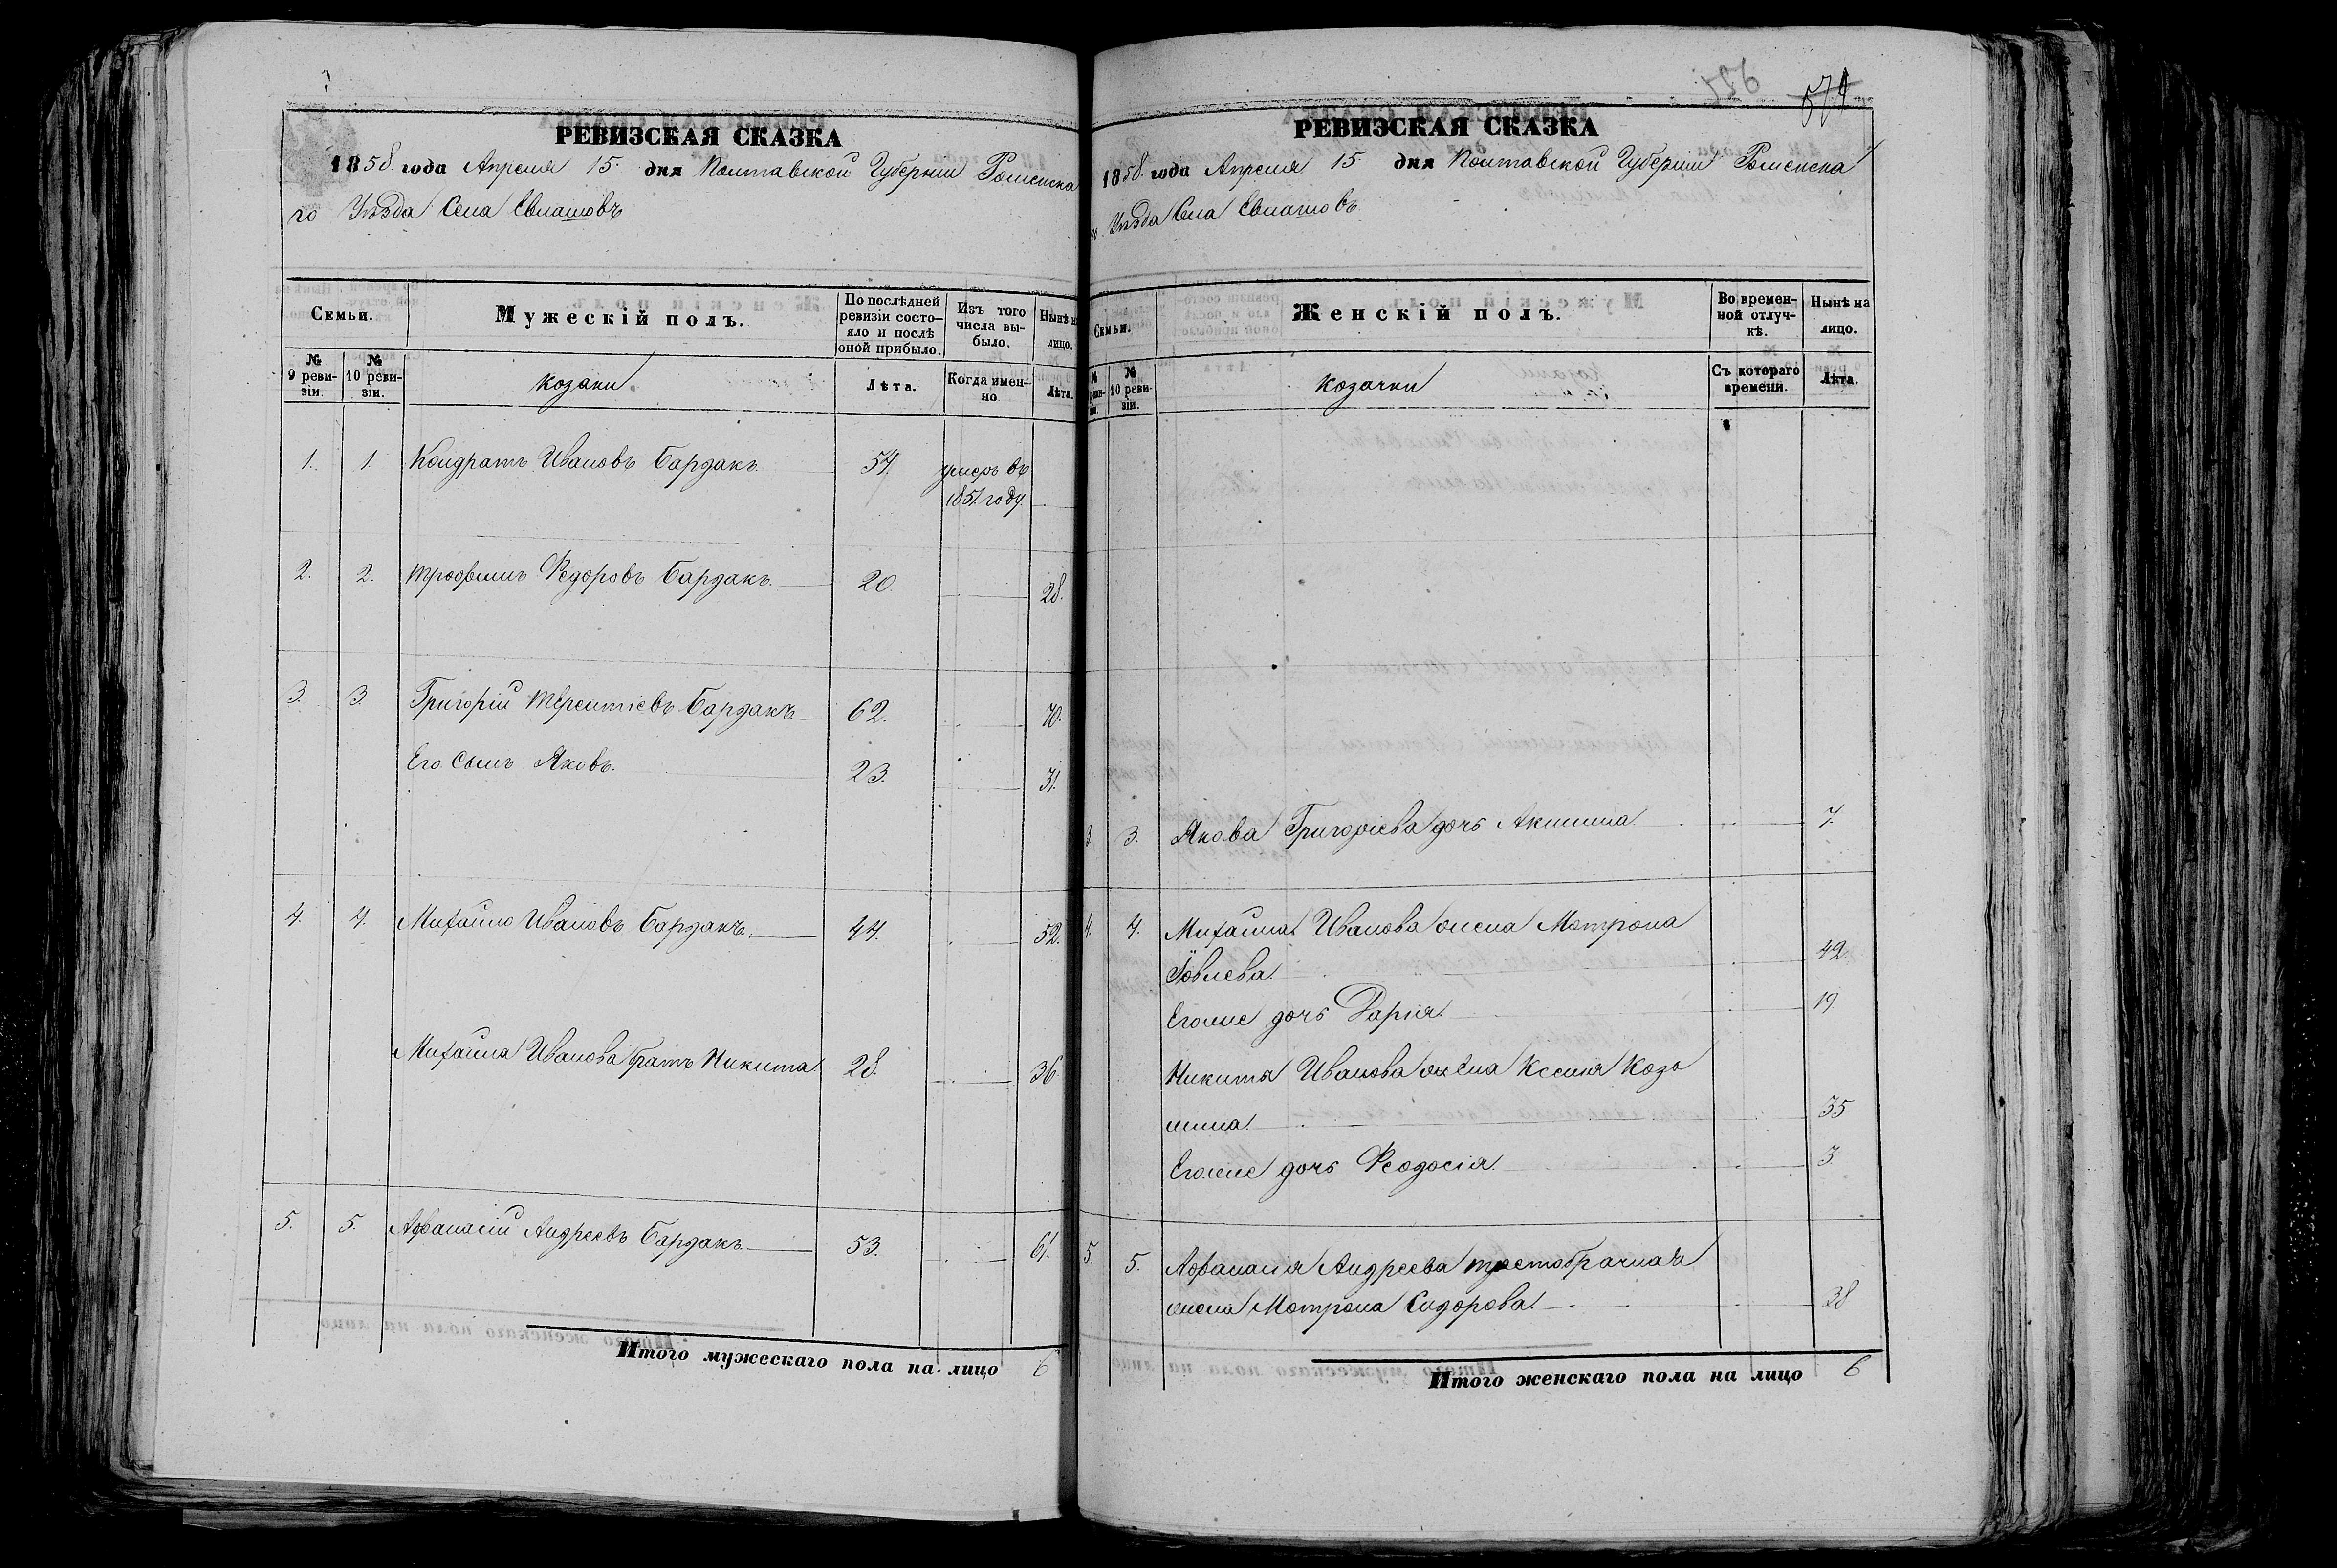 РЕВИЗСКАЯ СКАЗКА
1858 года Апреля 15 дня Полтавской Губерніи Роменска
го Уѣзда Села Свиашовъ
Семьи.
Мужескій полъ.
По послѣдней ревизіи состояло и послѣ оной прибыло.
Изъ того числа выбыло.
Нынѣ на лицо.
№ 9 ревизіи.
№ 10 ревизіи.
козаки.
Лѣта.
Когда именно
Лѣта.
1. 1 Кондратъ Ивановъ Бардакъ 54. умеръ въ
1851 году
2. 2. Трофимъ Федоровъ Бардакъ 20. 28.
3. 3. Григорій Терентіевъ Бардакъ 62. 70.
Его Сынъ Яковъ. 23. 31.
4. 4. Михайло Ивановъ Бардакъ. 44. 52.
Михайла Иванова братъ Никита 28. 36
5. 5. Афанасій Андреевъ Бардакъ 53. 61.
Итого мужескаго пола на лицо 6
574
РЕВИЗСКАЯ СКАЗКА
1858 года Апреля 15 дня Полтавской Губерніи Роменска
го Уѣзда Села
Семьи.
Женскій полъ.
Во временной отлучкѣ.
Нынѣ на лицо.
№ 10 ревизіи.
козачки
Съ котораго времени.
Лѣта.
3. 3. Якова Григоріева дочь Акилина 7.
4. 4. Михайла Иванова жена Мотрона
Іовлева 42
Егоже дочь Дарія 19
Никиты Иванова жена Ксенія Козь
мина 35
Егоже дочь Феодосія 3
5. 5. Афанасія Андреева третобрачная
жена Мотрона Сидорова 38
Итого женскаго пола на лицо 6